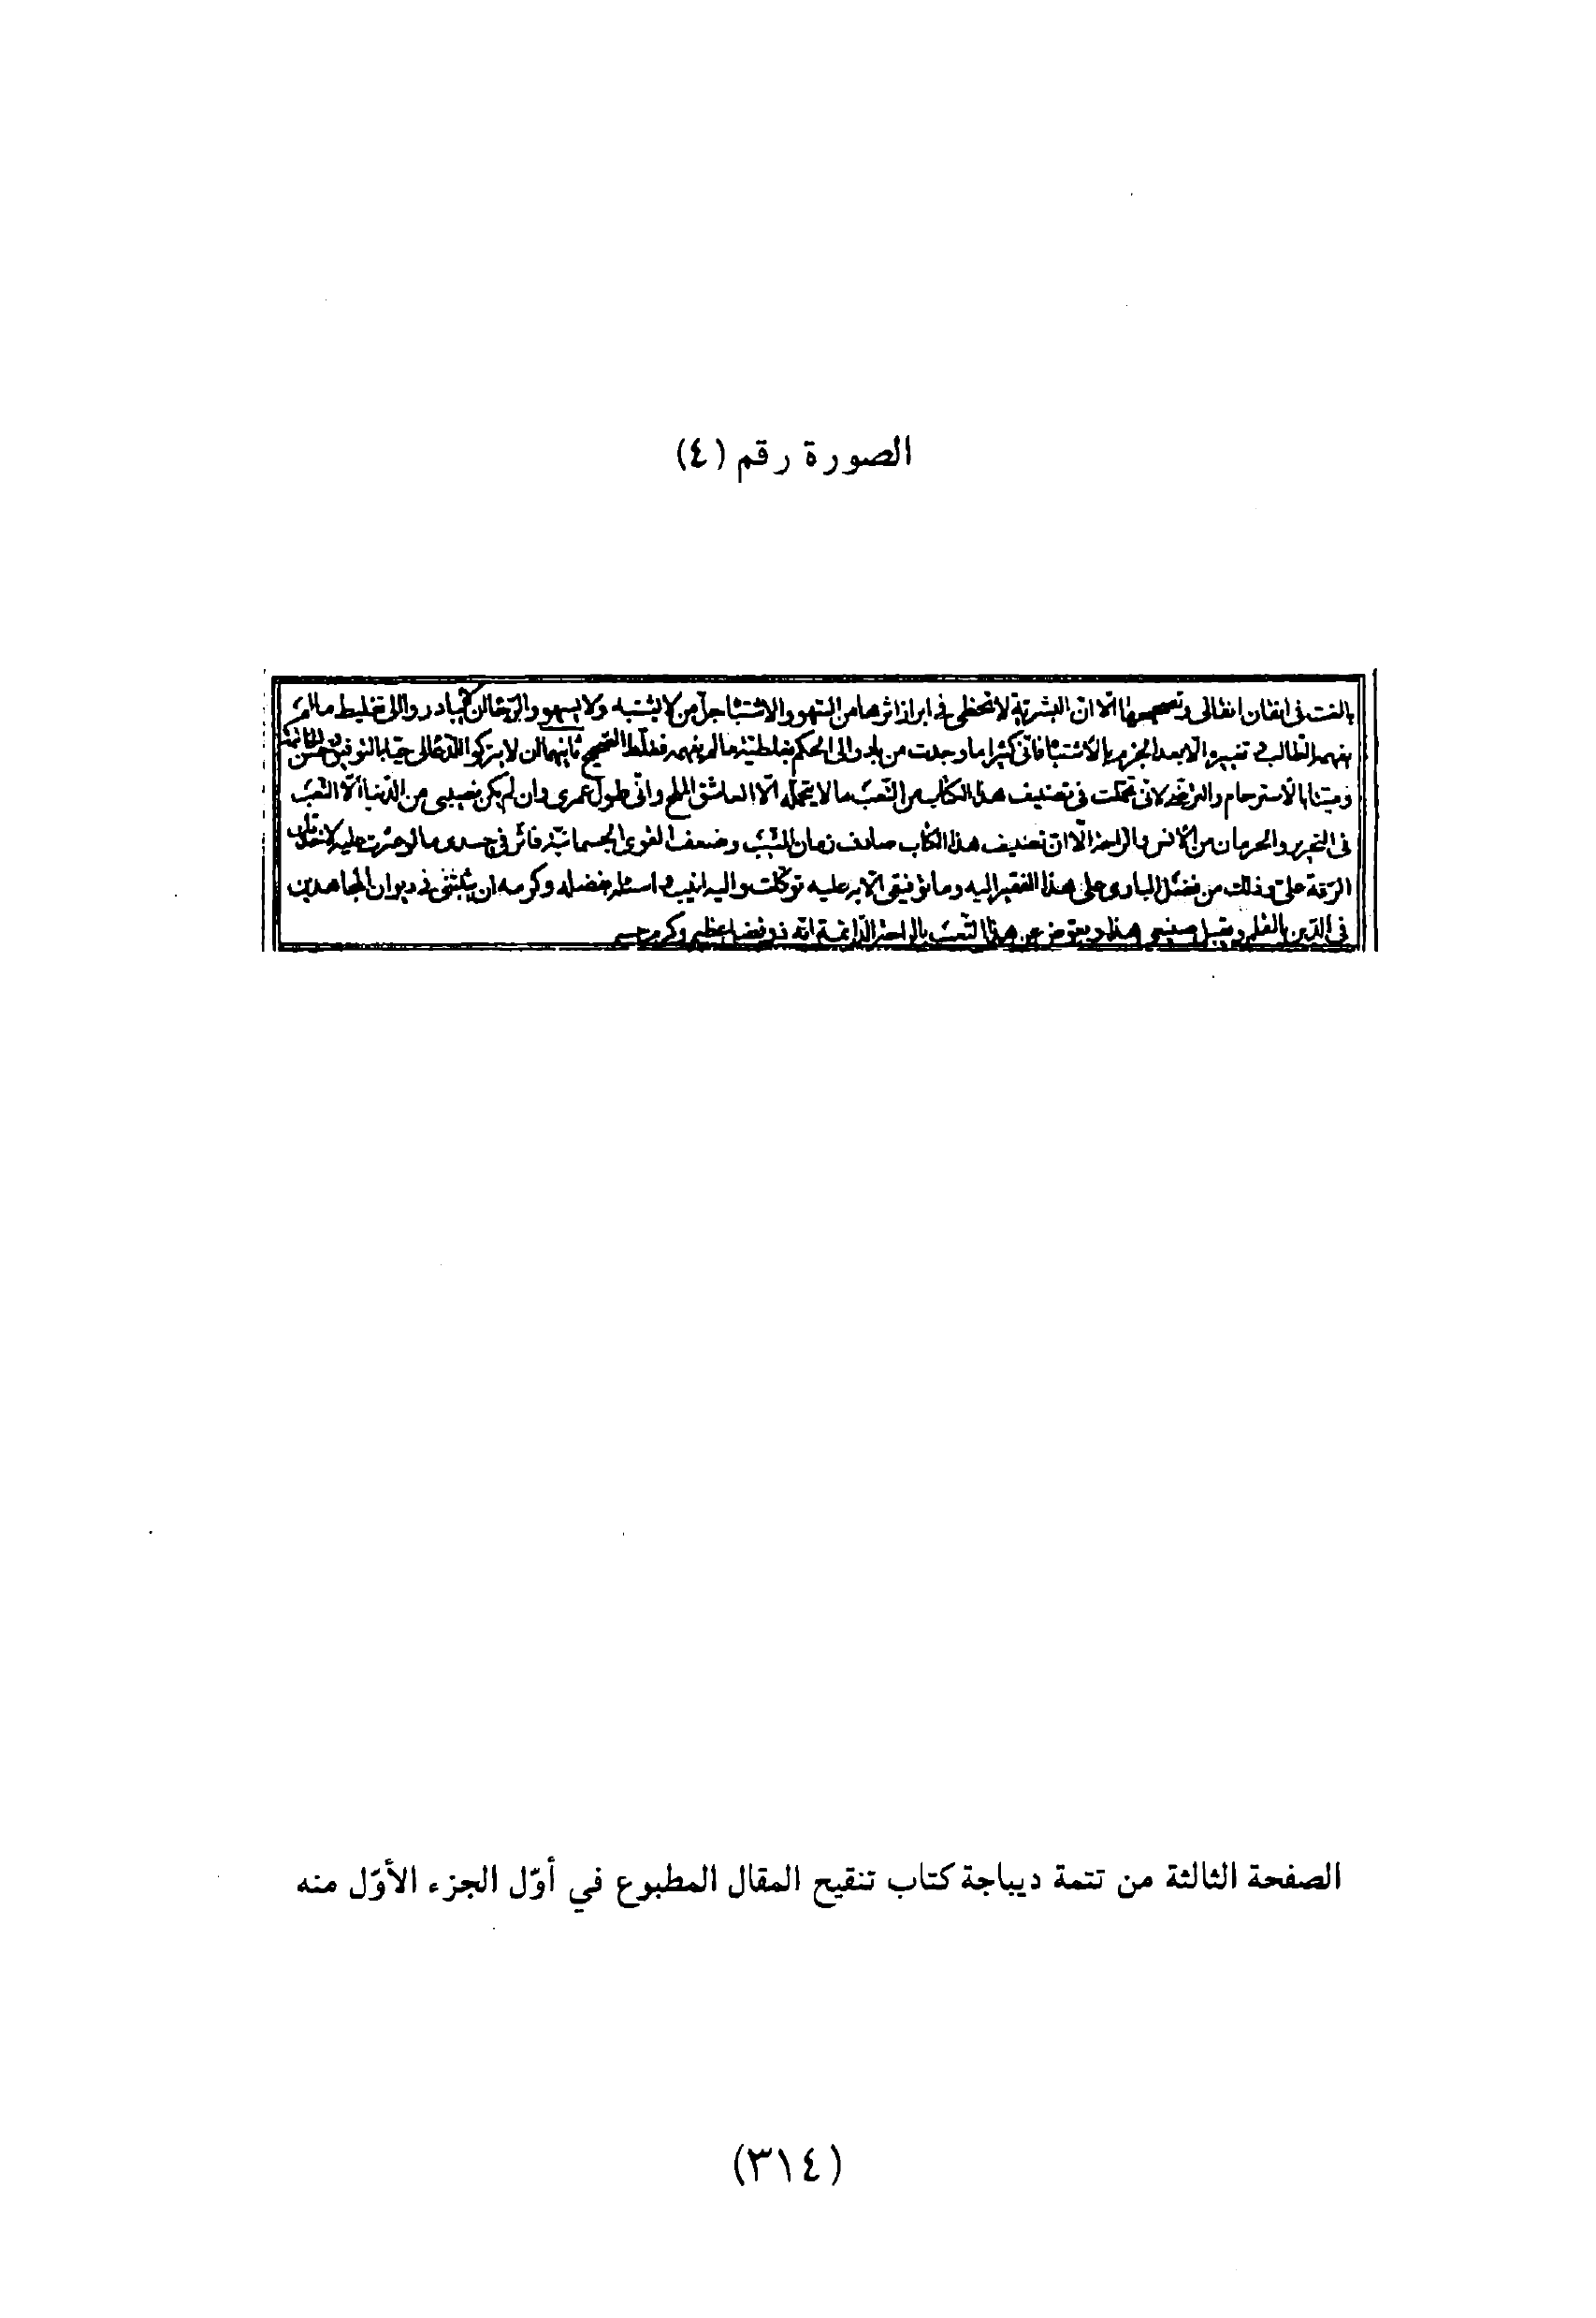 الصورة رقم (٤)
بالغت في اتقان انفالى وتصحيحها الّا انّ البشريّة لا تخطى في ابراز اثرها من السّهو والاشتباه جلّ من لا يشتبه ولا يسهو والرّجا ان لا يبادروا الى تغليط مالم
يفهم الطالب تغييره الا بعد الجزم بالاشتباه فانّى كثيرا ما وجدت من بادر الى الحكم بغلطيّة مالم يفهمه فغلّط الصّحيح ثانيهما ان لا يتركوا الدّعا لى حيّا بالتوفيق وحسن
وميّتا بالاسترحام والترحّم لانى تحمّلت في تصنيف هذا الكتاب من التّعب ما لا يتحمّله الّا العاشق الملحّ وانّى طول عمرى وان لم يكن نصيبى من الدّنيا الّا التّعب
في التحرير والحرمان من الانس والراحة الّا انّ تصنيف هذا الكتاب صادف زمان الشيب وضعف القوى الجسمانيّة فاثّر في جسدى ما لو عثرت عليه
الرّقة علىّ وذلك من فضل البارى على هذا الفقير اليه وما توفيقى الّا به عليه توكّلت واليه انيب واسئله بفضله وكرمه ان يثبتنى في ديوان المجاهدين
في الدّين بالقلم ويقبل صنيعى هذا ويعوّضنى عن هذا التّعب بالراحة الدّائمة انّه ذو فضل عظيم وكرم جسيم
الصفحة الثالثة من تتمة ديباجة كتاب تنقيح المقال المطبوع في أوّل الجزء الأوّل منه
(٣١٤)